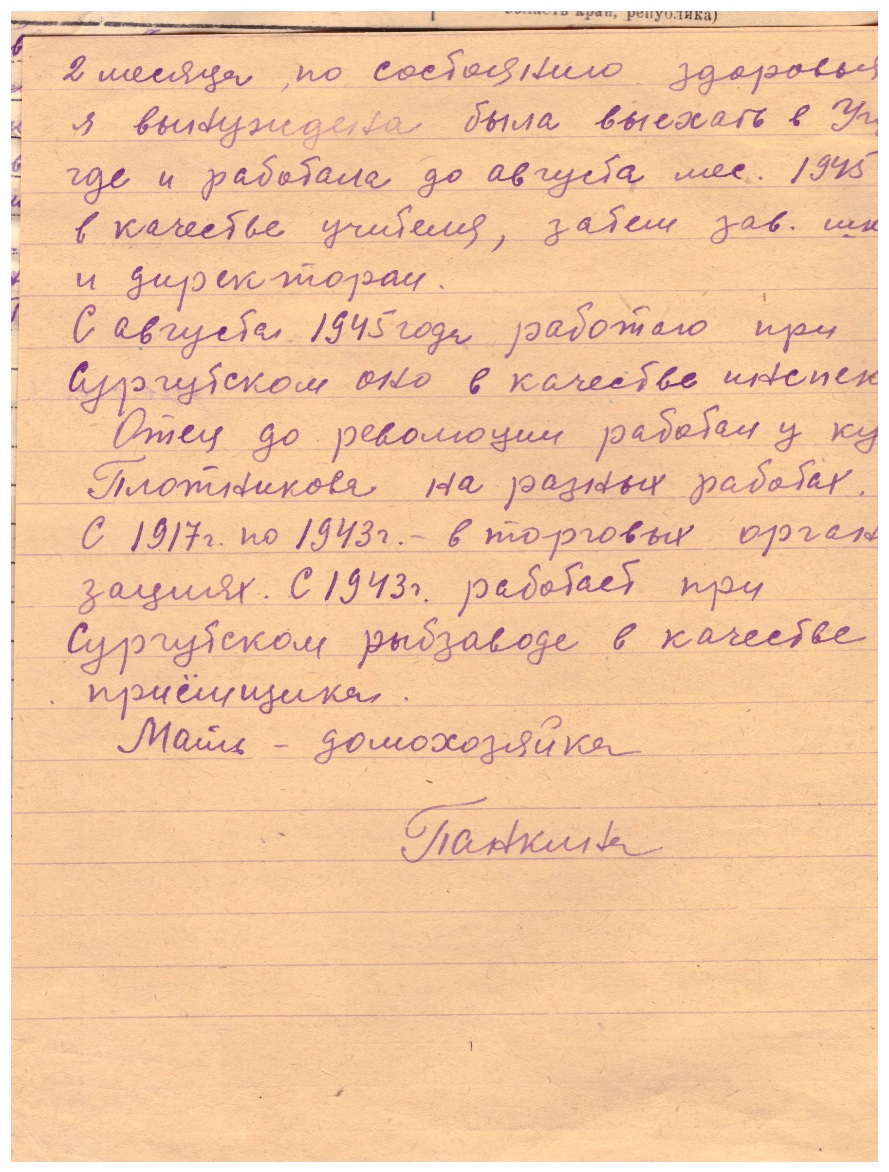 область край, република)
2 месяца, по состоянию здоровья
я вынуждена была выехать в
где и работала до августа мес. 1945
в качестве учителя, затем зав. шк
и директором.
С августа 1945 года работаю при
Сургутском оно в качестве инспек
Отец до революции работал у ку
Плотникова на разных работах.
С 1917г. по 1943г. - в торговых орган
зациях. С 1943г. работает при
Сургутском рыбзаводе в качестве
приёмщика.
Мать - домохозяйка
Панкина